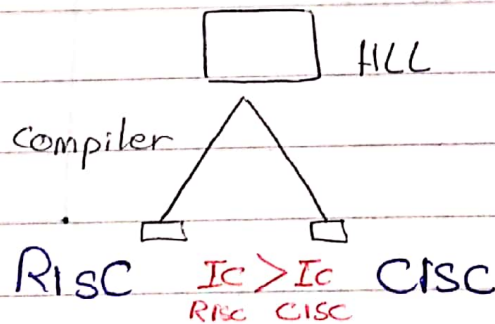 HLL
Compiler
RISC Ic > Ic CISC
RISC CISC